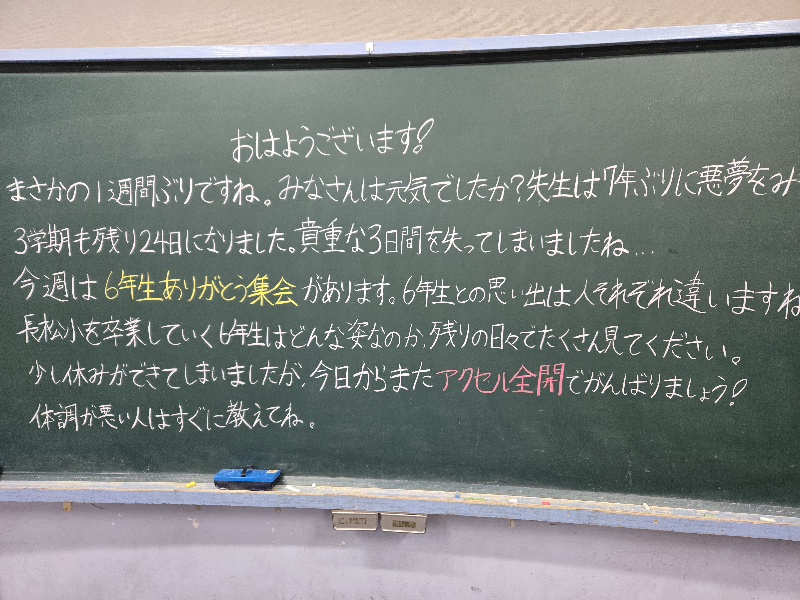 おはようございます!
まさかの1週間ぶりですね。みなさんは元気でしたか?先生は7年ぶりに悪夢をみ
3学期も残り24日になりました。貴重な3日間を失ってしまいましたね...
今週は6年生ありがとう集会があります。6年生との思い出は人それぞれ違いますね
長松小を卒業していく6年生はどんな姿なのか、残りの日々でたくさん見てください。
少し休みができてしまいましたが、今日からまたアクセル全開でがんばりましょう!
体調が悪い人はすぐに教えてね。